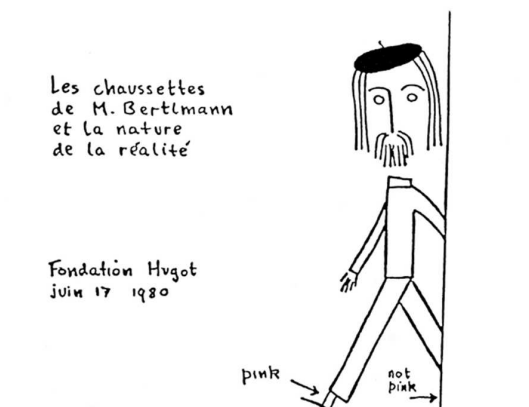 Les chaussettes
de M. Bertlmann
et la nature
de la réalité
Fondation Hugot
juin 17 1980
pink
not
pink